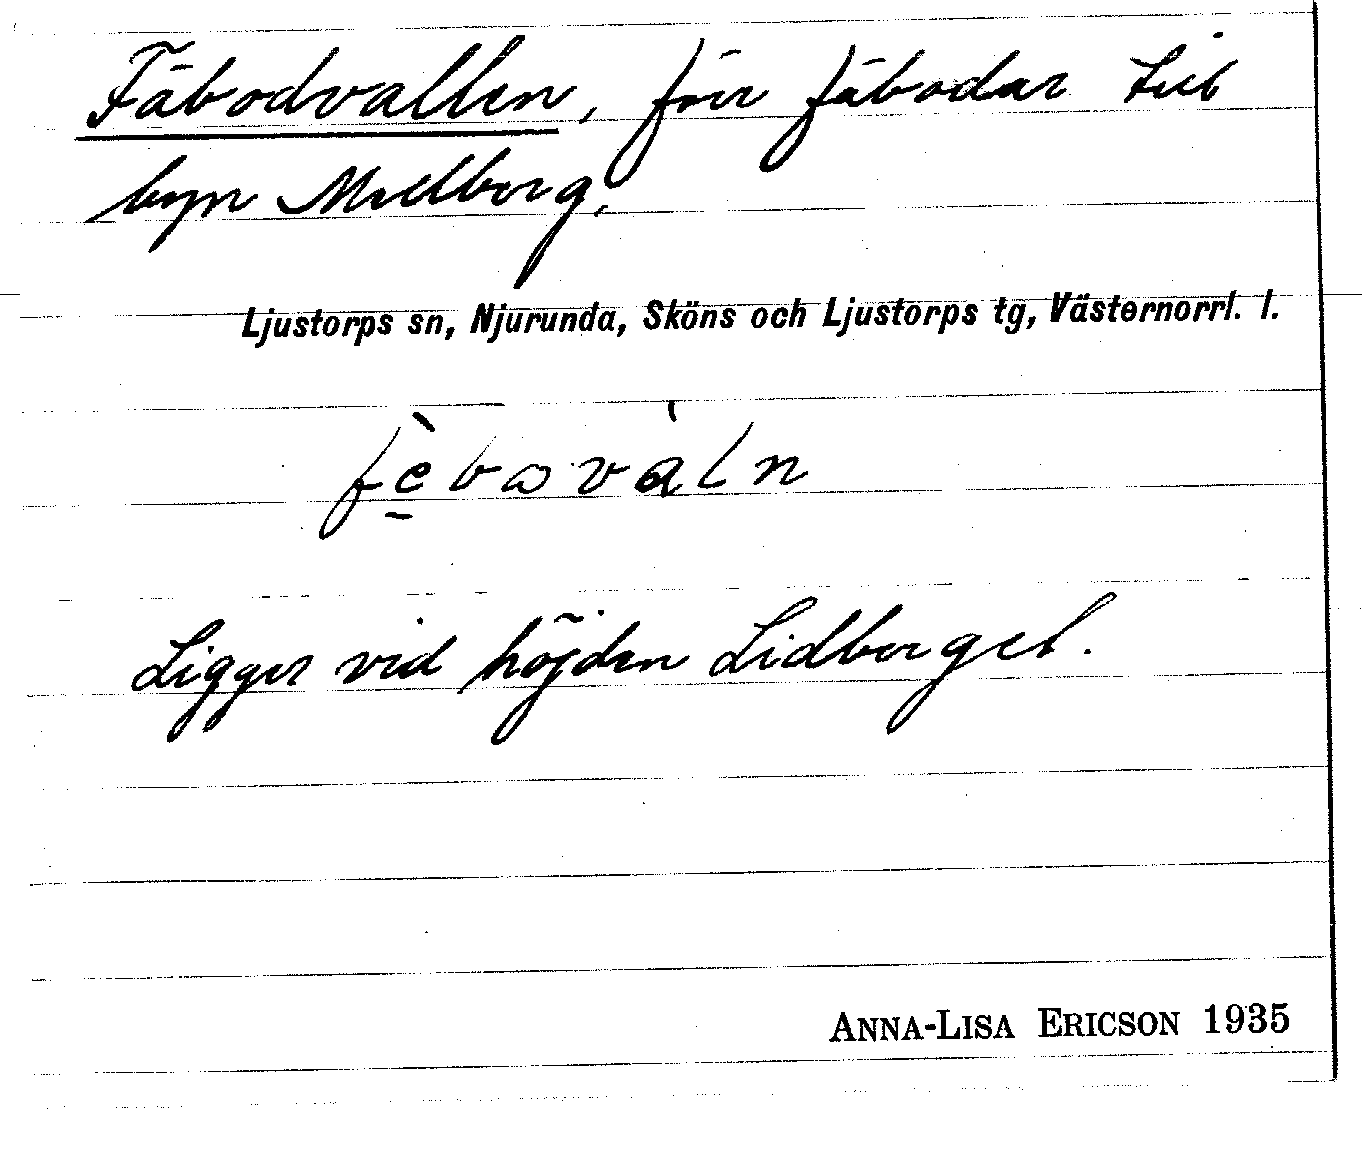 Fäbodvallen, förr fäbodar till
byn Mellberg.
Ljustorps sn, Njurunda, Sköns och Ljustorps tg, Västernorrl. l.
fèbωvàln
Ligger vid höjden Lidberget.
ANNA-LISA ERICSON 1935